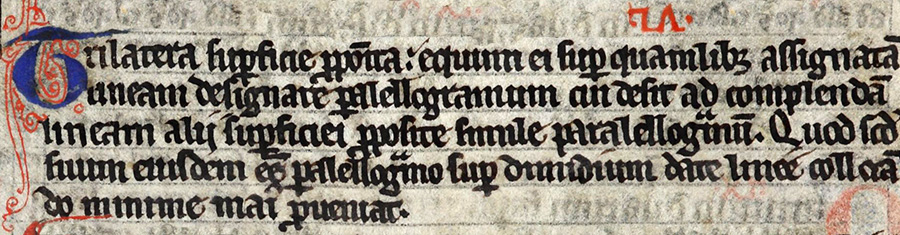 27.
Trilatera suꝑficie ꝓpoīta: equum ei suꝑ quamlibꝫ assignatā
lineam designare ꝑalellogramum cui desit ad complendā
lineam alij suꝑficiei ꝓposite simile paralellogᵃmū. Quod scd̄
suum eiusdem ꝑalellogᵃmo suꝑ dimidium date linee collocā
do minime mai ꝓueniat.